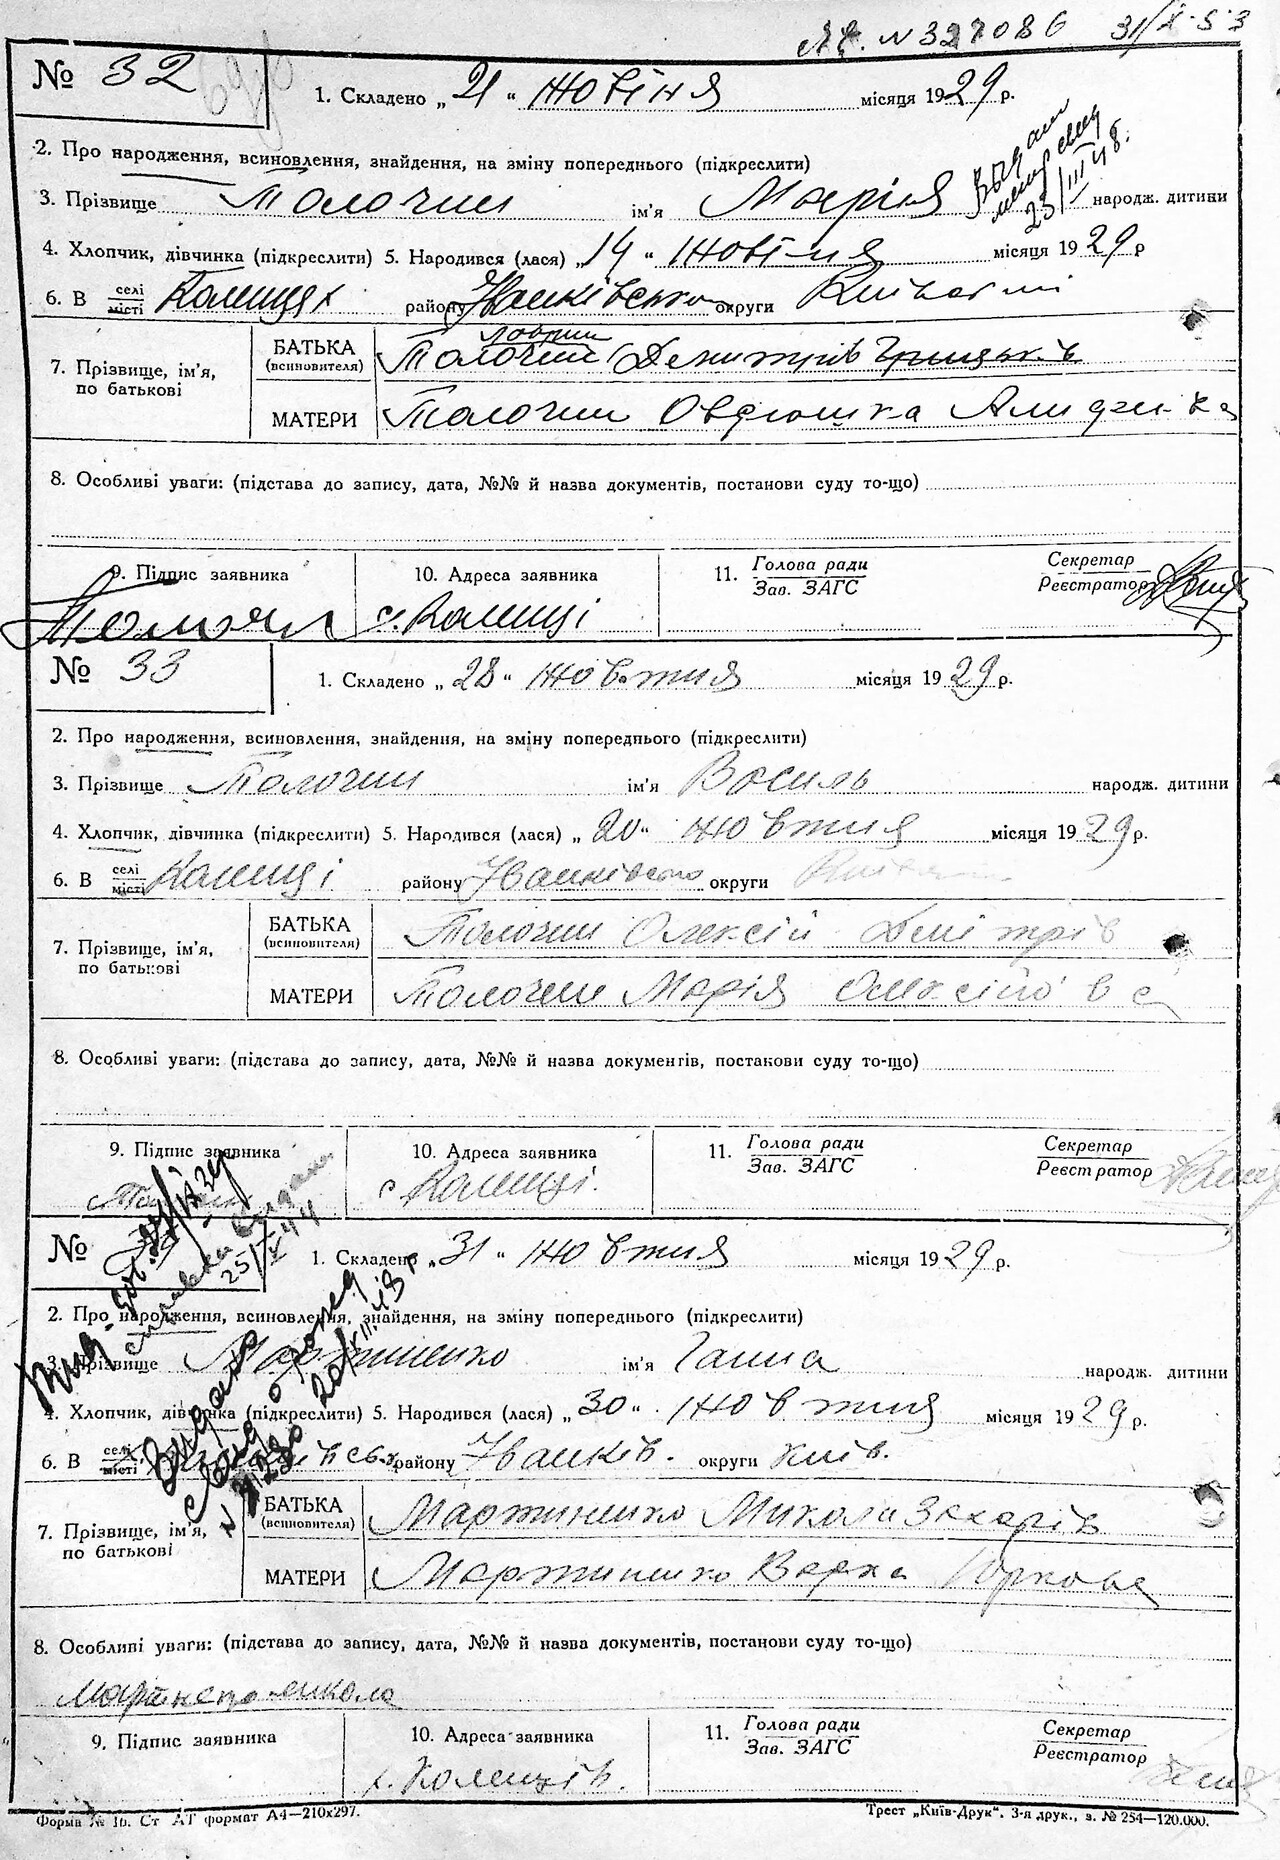 N 327086 31/X-53
№ 32
1. Складено „ 21 “ жовтня місяця 1929 р.
2. Про народження, всиновлення, знайдення, на зміну попереднього (підкреслити)
23/III 48.
3. Прізвище Толочин ім'я Марія народж. дитини
4. Хлопчик, дівчинка (підкреслити) 5. Народився (лася) „ 14 “ жовтня місяця 1929 р
6. В селі місті Коленцях району Іванківсько округи
7. Прізвище, ім'я, по батькові
БАТЬКА (всиновителя) Толочин Дмитрів
МАТЕРИ Толочин Овдюшка
8. Особливі уваги: (підстава до запису, дата, №№ й назва документів, постанови суду то-що)
9. Підпис заявника 10. Адреса заявника 11. Голова ради Зав. ЗАГС Секретар Реєстратор
Толочин с. Коленці
№ 33
1. Складено „ 28 “ жовтня місяця 1929 р.
2. Про народження, всиновлення, знайдення, на зміну попереднього (підкреслити)
3. Прізвище Толочин ім'я Василь народж. дитини
4. Хлопчик, дівчинка (підкреслити) 5. Народився (лася) „ 20 “ жовтня місяця 1929 р.
6. В селі місті Коленці району Іванківсько округи
7. Прізвище, ім'я, по батькові
БАТЬКА (всиновителя) Толочин Олексій Дмітрів
МАТЕРИ Толочин Марія Олексійова
8. Особливі уваги: (підстава до запису, дата, №№ й назва документів, постанови суду то-що)
9. Підпис заявника 10. Адреса заявника 11. Голова ради Зав. ЗАГС Секретар Реєстратор
с Коленці.
№
1. Складено „ 31 “ жовтня місяця 1929 р.
2. Про народження, всиновлення, знайдення, на зміну попереднього (підкреслити)
3. Прізвище Мартиненко ім'я Ганна народж. дитини
4. Хлопчик, дівчинка (підкреслити) 5. Народився (лася) „ 30 “ жовтня місяця 1929 р.
6. В селі місті району Іванків. округи Київ.
7. Прізвище, ім'я, по батькові
БАТЬКА (всиновителя) Мартиненко Микола Захарів
МАТЕРИ Мартиненко Варка Юркова
8. Особливі уваги: (підстава до запису, дата, №№ й назва документів, постанови суду то-що)
микола
9. Підпис заявника 10. Адреса заявника 11. Голова ради Зав. ЗАГС Секретар Реєстратор
х. Коленців.
Форма № 1б. Ст АТ формат А4—210х297. Трест „Київ-Друк“. 3-я друк., з. № 254—120.000.